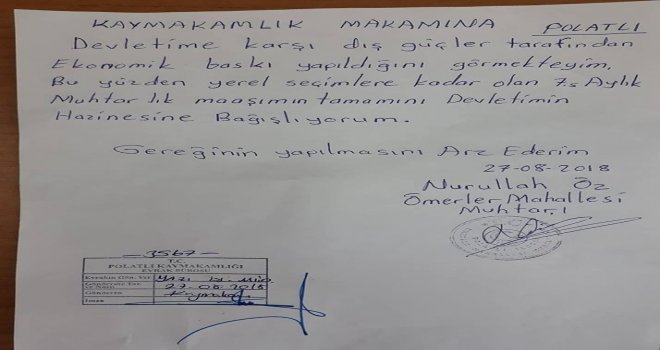 KAYMAKAMLIK MAKAMINA POLATLI
Devletime karşı dış güçler tarafından
Ekonomik baskı yapıldığını görmekteyim.
Bu yüzden yerel seçimlere kadar olan 7,5 Aylık
Muhtarlık maaşımın tamamını Devletimin
Hazinesine Bağışlıyorum.
Gereğinin yapılmasını Arz Ederim
27-08-2018
Nurullah Öz
Ömerler Mahallesi
Muhtarı
3567
T.C.
POLATLI KAYMAKAMLIĞI
EVRAK BÜROSU
Evrakın Gön. Yer Yazı İşl. Müd.
27.08.2018
Gönderen Kaymakam
İmza